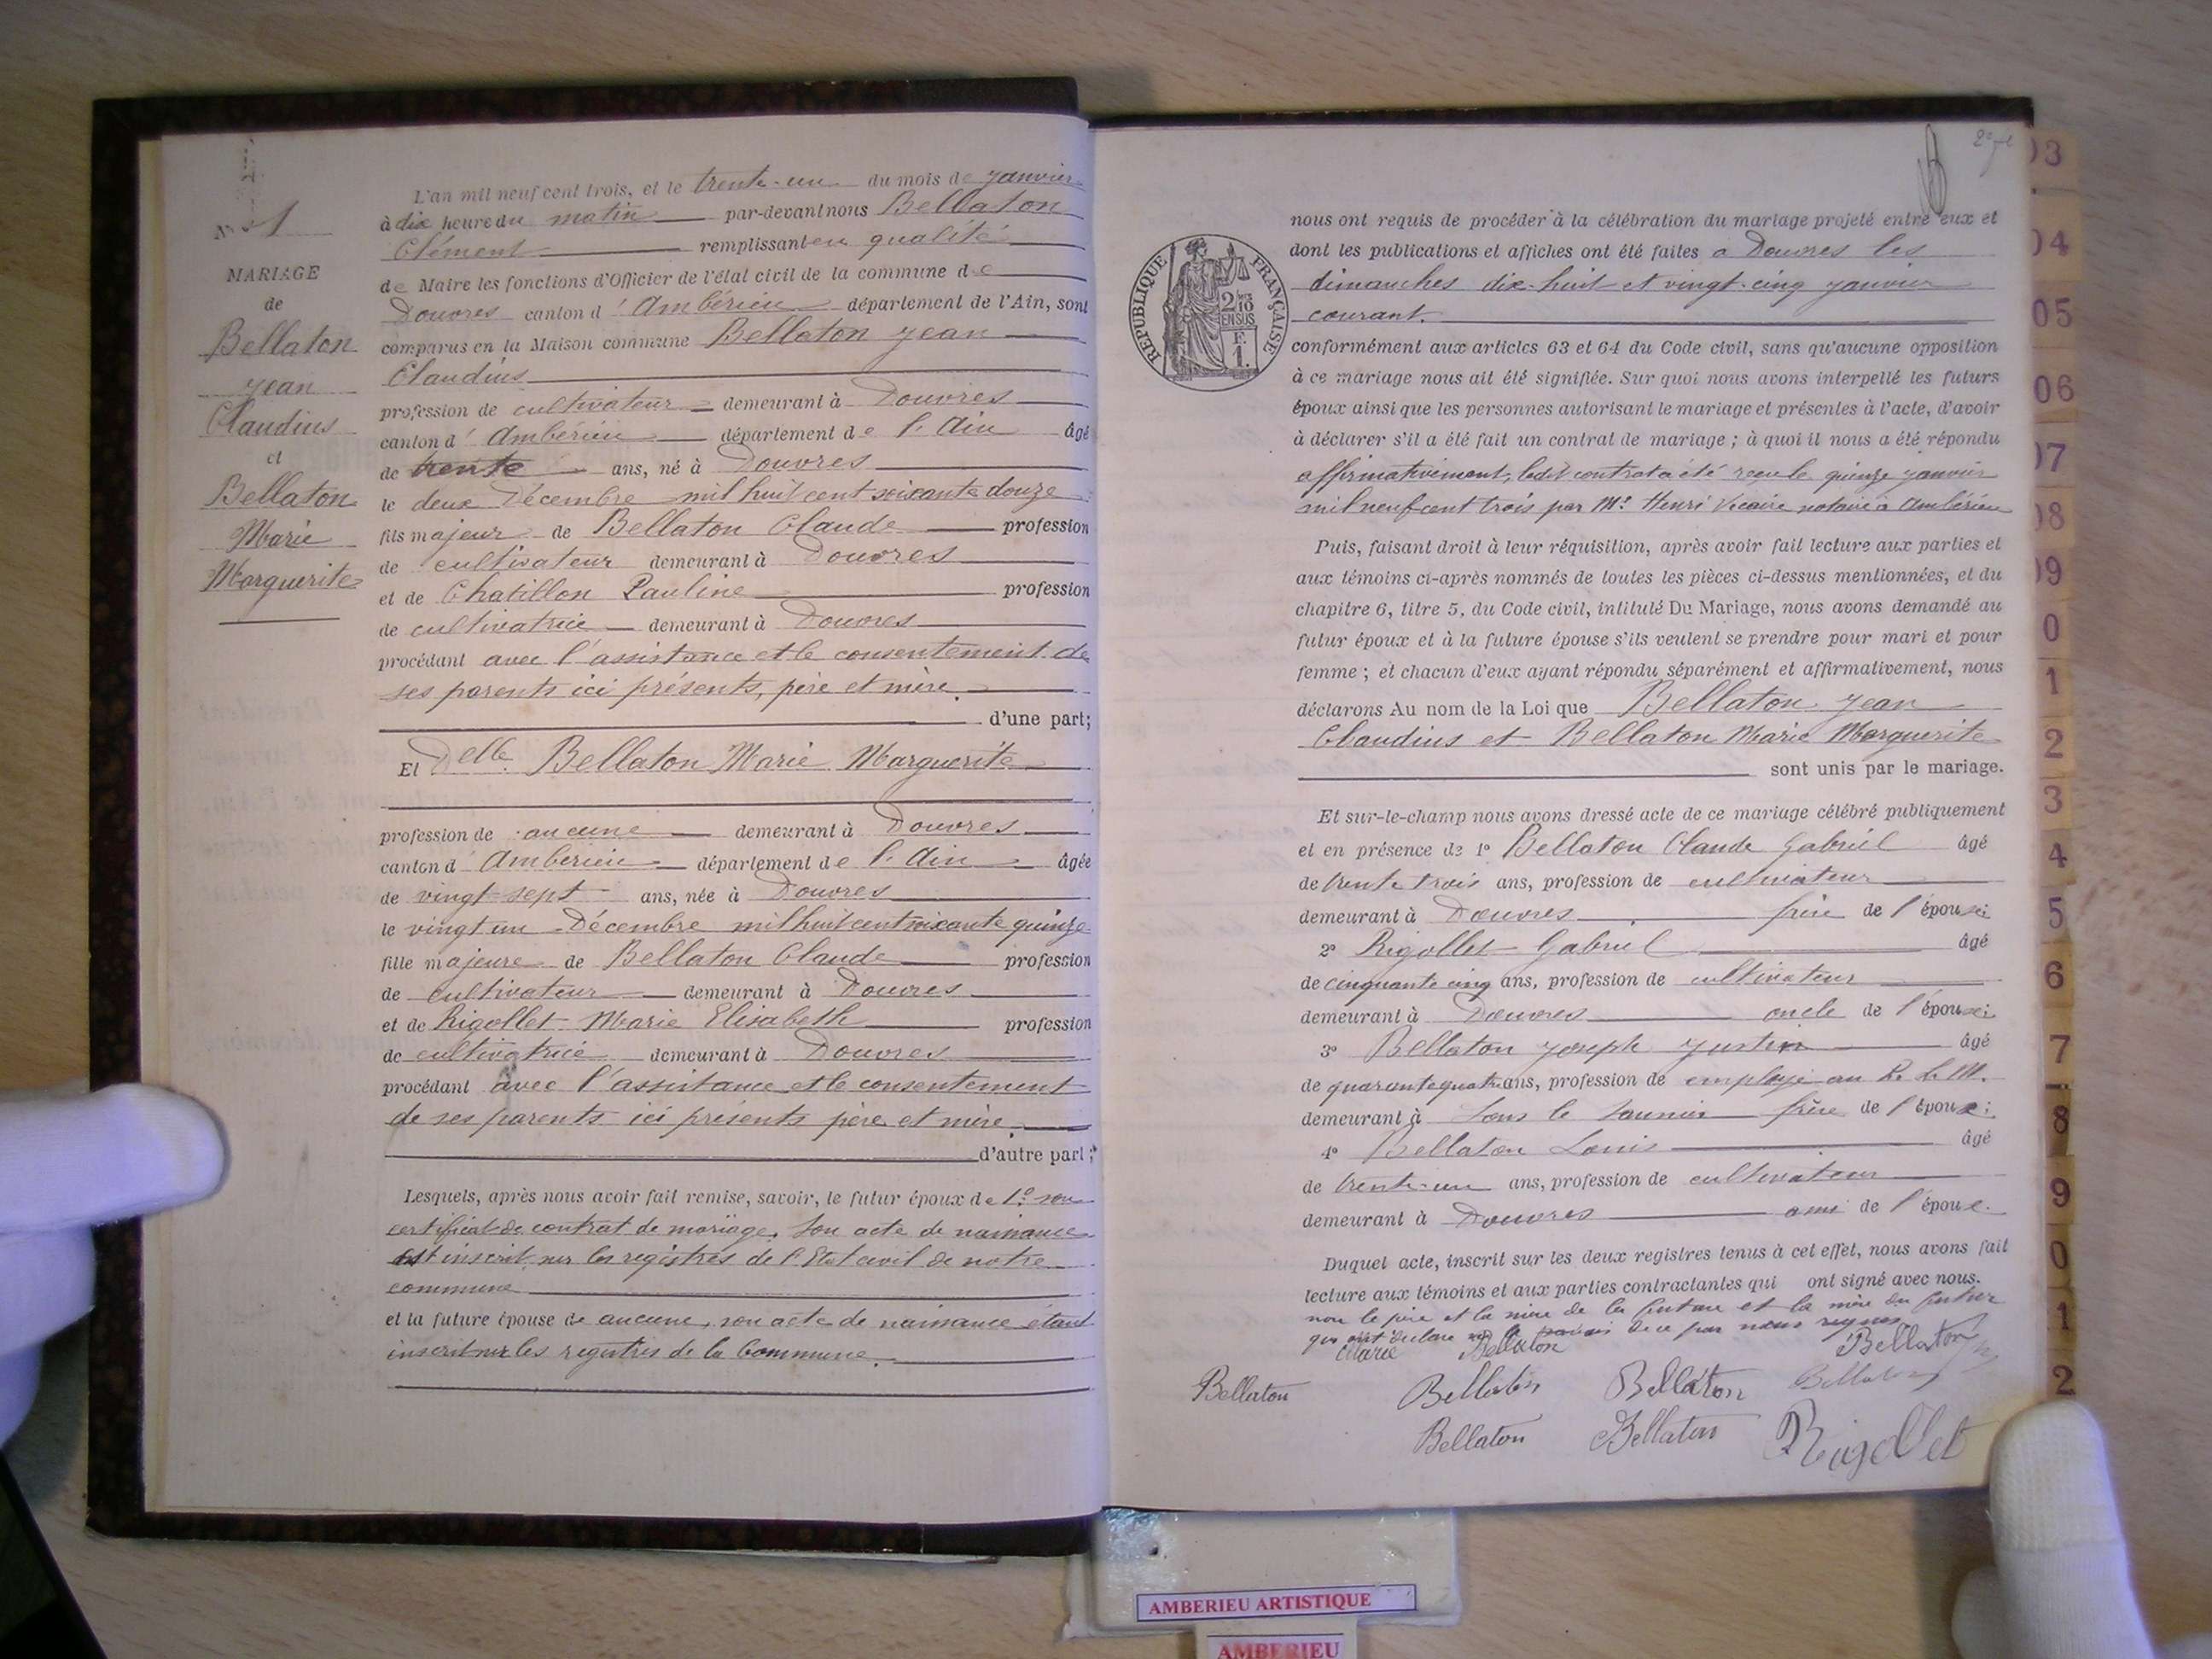 N° 1
MARIAGE
de
Bellaton
Jean
Claudius
et
Bellaton
Marie
Marguerite
L'an mil neuf cent trois, et le trente-un du mois de Janvier
à dix heure du matin par-devant nous Bellaton
Clément remplissant en qualité
de Maire les fonctions d'Officier de l'état civil de la commune de
Douvres canton d'Ambérieu département de l'Ain, sont
comparus en la Maison commune Bellaton Jean
Claudius
profession de cultivateur demeurant à Douvres
canton d'Ambérieu département de l'Ain âgé
de trente ans, né à Douvres
le deux Décembre mil huit cent soixante douze
fils majeur de Bellaton Claude profession
de cultivateur demeurant à Douvres
et de Chatillon Pauline profession
de cultivatrice demeurant à Douvres
procédant avec l'assistance et le consentement de
ses parents ici présents, père et mère.
d'une part;
Et Delle Bellaton Marie Marguerite
profession de aucune demeurant à Douvres
canton d'Ambérieu département de l'Ain âgée
de vingt-sept ans, née à Douvres
le vingt un Décembre mil huit cent soixante quinze
fille majeure de Bellaton Claude profession
de cultivateur demeurant à Douvres
et de Rigollet Marie Elisabeth profession
de cultivatrice demeurant à Douvres
procédant avec l'assistance et le consentement
de ses parents ici présents père et mère.
d'autre part;
Lesquels, après nous avoir fait remise, savoir, le futur époux de 1° son
certificat de contrat de mariage. Son acte de naissance
est inscrit sur les registres de l'Etat civil de notre
commune
et la future épouse de aucune, son acte de naissance étant
inscrit sur les registres de la Commune.
2e
nous ont requis de procéder à la célébration du mariage projeté entre eux et
dont les publications et affiches ont été faites a Douvres les
dimanches dix-huit et vingt-cinq janvier
courant.
RÉPUBLIQUE FRANÇAISE
2/10 EN SUS
F. 1.
conformément aux articles 63 et 64 du Code civil, sans qu'aucune opposition
à ce mariage nous ait été signifiée. Sur quoi nous avons interpellé les futurs
époux ainsi que les personnes autorisant le mariage et présentes à l'acte, d'avoir
à déclarer s'il a été fait un contrat de mariage; à quoi il nous a été répondu
affirmativement, ledit contrat a été recu le quinze janvier
mil neuf cent trois par Me Henri Vicaire notaire à Ambérieu
Puis, faisant droit à leur réquisition, après avoir fait lecture aux parties et
aux témoins ci-après nommés de toutes les pièces ci-dessus mentionnées, et du
chapitre 6, titre 5, du Code civil, intitulé Du Mariage, nous avons demandé au
futur époux et à la future épouse s'ils veulent se prendre pour mari et pour
femme; et chacun d'eux ayant répondu séparément et affirmativement, nous
déclarons Au nom de la Loi que Bellaton Jean
Claudius et Bellaton Marie Marguerite
sont unis par le mariage.
Et sur-le-champ nous avons dressé acte de ce mariage célébré publiquement
et en présence de 1° Bellaton Claude Gabriel âgé
de trente trois ans, profession de cultivateur
demeurant à Douvres frère de l'épouse;
2° Rigollet Gabriel âgé
de cinquante cinq ans, profession de cultivateur
demeurant à Douvres oncle de l'épouse;
3° Bellaton Joseph Justin âgé
de quarante quatre ans, profession de employé au P. L. M.
demeurant à Lons le Saunier frère de l'épouse;
4° Bellaton Louis âgé
de trente-un ans, profession de cultivateur
demeurant à Douvres ami de l'épouse.
Duquel acte, inscrit sur les deux registres tenus à cet effet, nous avons fait
lecture aux témoins et aux parties contractantes qui ont signé avec nous.
non le père et la mère de la future et la mère du futur
qui ont déclaré ne le savoir de ce par nous requis.
Marie Bellaton Bellaton
Bellaton Bellaton Bellaton Bellaton
Bellaton Bellaton Rigollet
03
04
05
06
07
08
09
0
1
2
3
4
5
6
7
8
9
0
1
2
AMBERIEU ARTISTIQUE
AMBERIEU